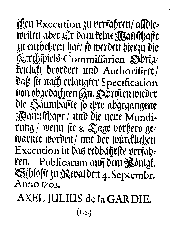 schen Execution zu verfahren/ alldie-
weilen aber Er dann seine Mannschafft
zu entbehren hat/ so werden hiezu die
Kirchspiels-Commissarien Obrig-
keitlich beordert und Authorisiret/
daß sie nach erlangter Specification
von obgedachten Hn. Obristen wieder
die Säumhaffte so ihre abgegangene
Mannschafft/ und die neue Mundi-
rung/ wenn sie 8. Tage vorhero ge-
warnet worden/ mit der würcklichen
Execution in das redbahrste verfah-
ren. Publicatum auf dem Königl.
Schlosse zu Reval den 4. Septembr.
Anno 1703.
AXEL JULIUS de la GARDIE.
(L.S.)